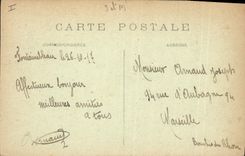 CARTE POSTALE
CORRESPONDANCE
ADRESSE
Fontainebleau le 26.10.17
Affectueux bonjour
meilleures amitiés
à tous
Arnaud
2
Monsieur Arnaud Joseph
94 rue d'Aubagne 94
Marseille
Bouches du Rhône